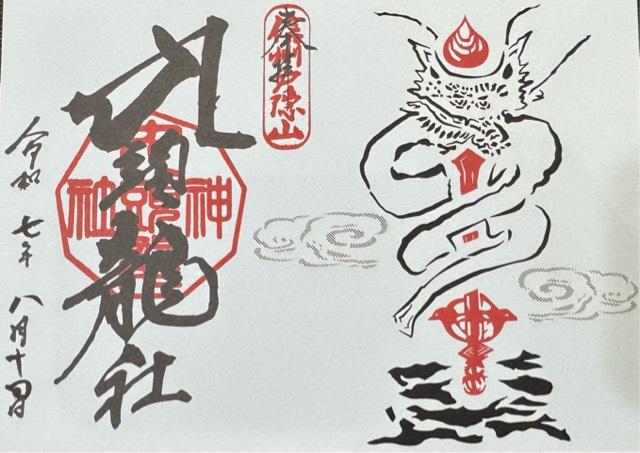 奉拝
信州戸隠山
九頭龍社
神
社
令和七年八月十四日